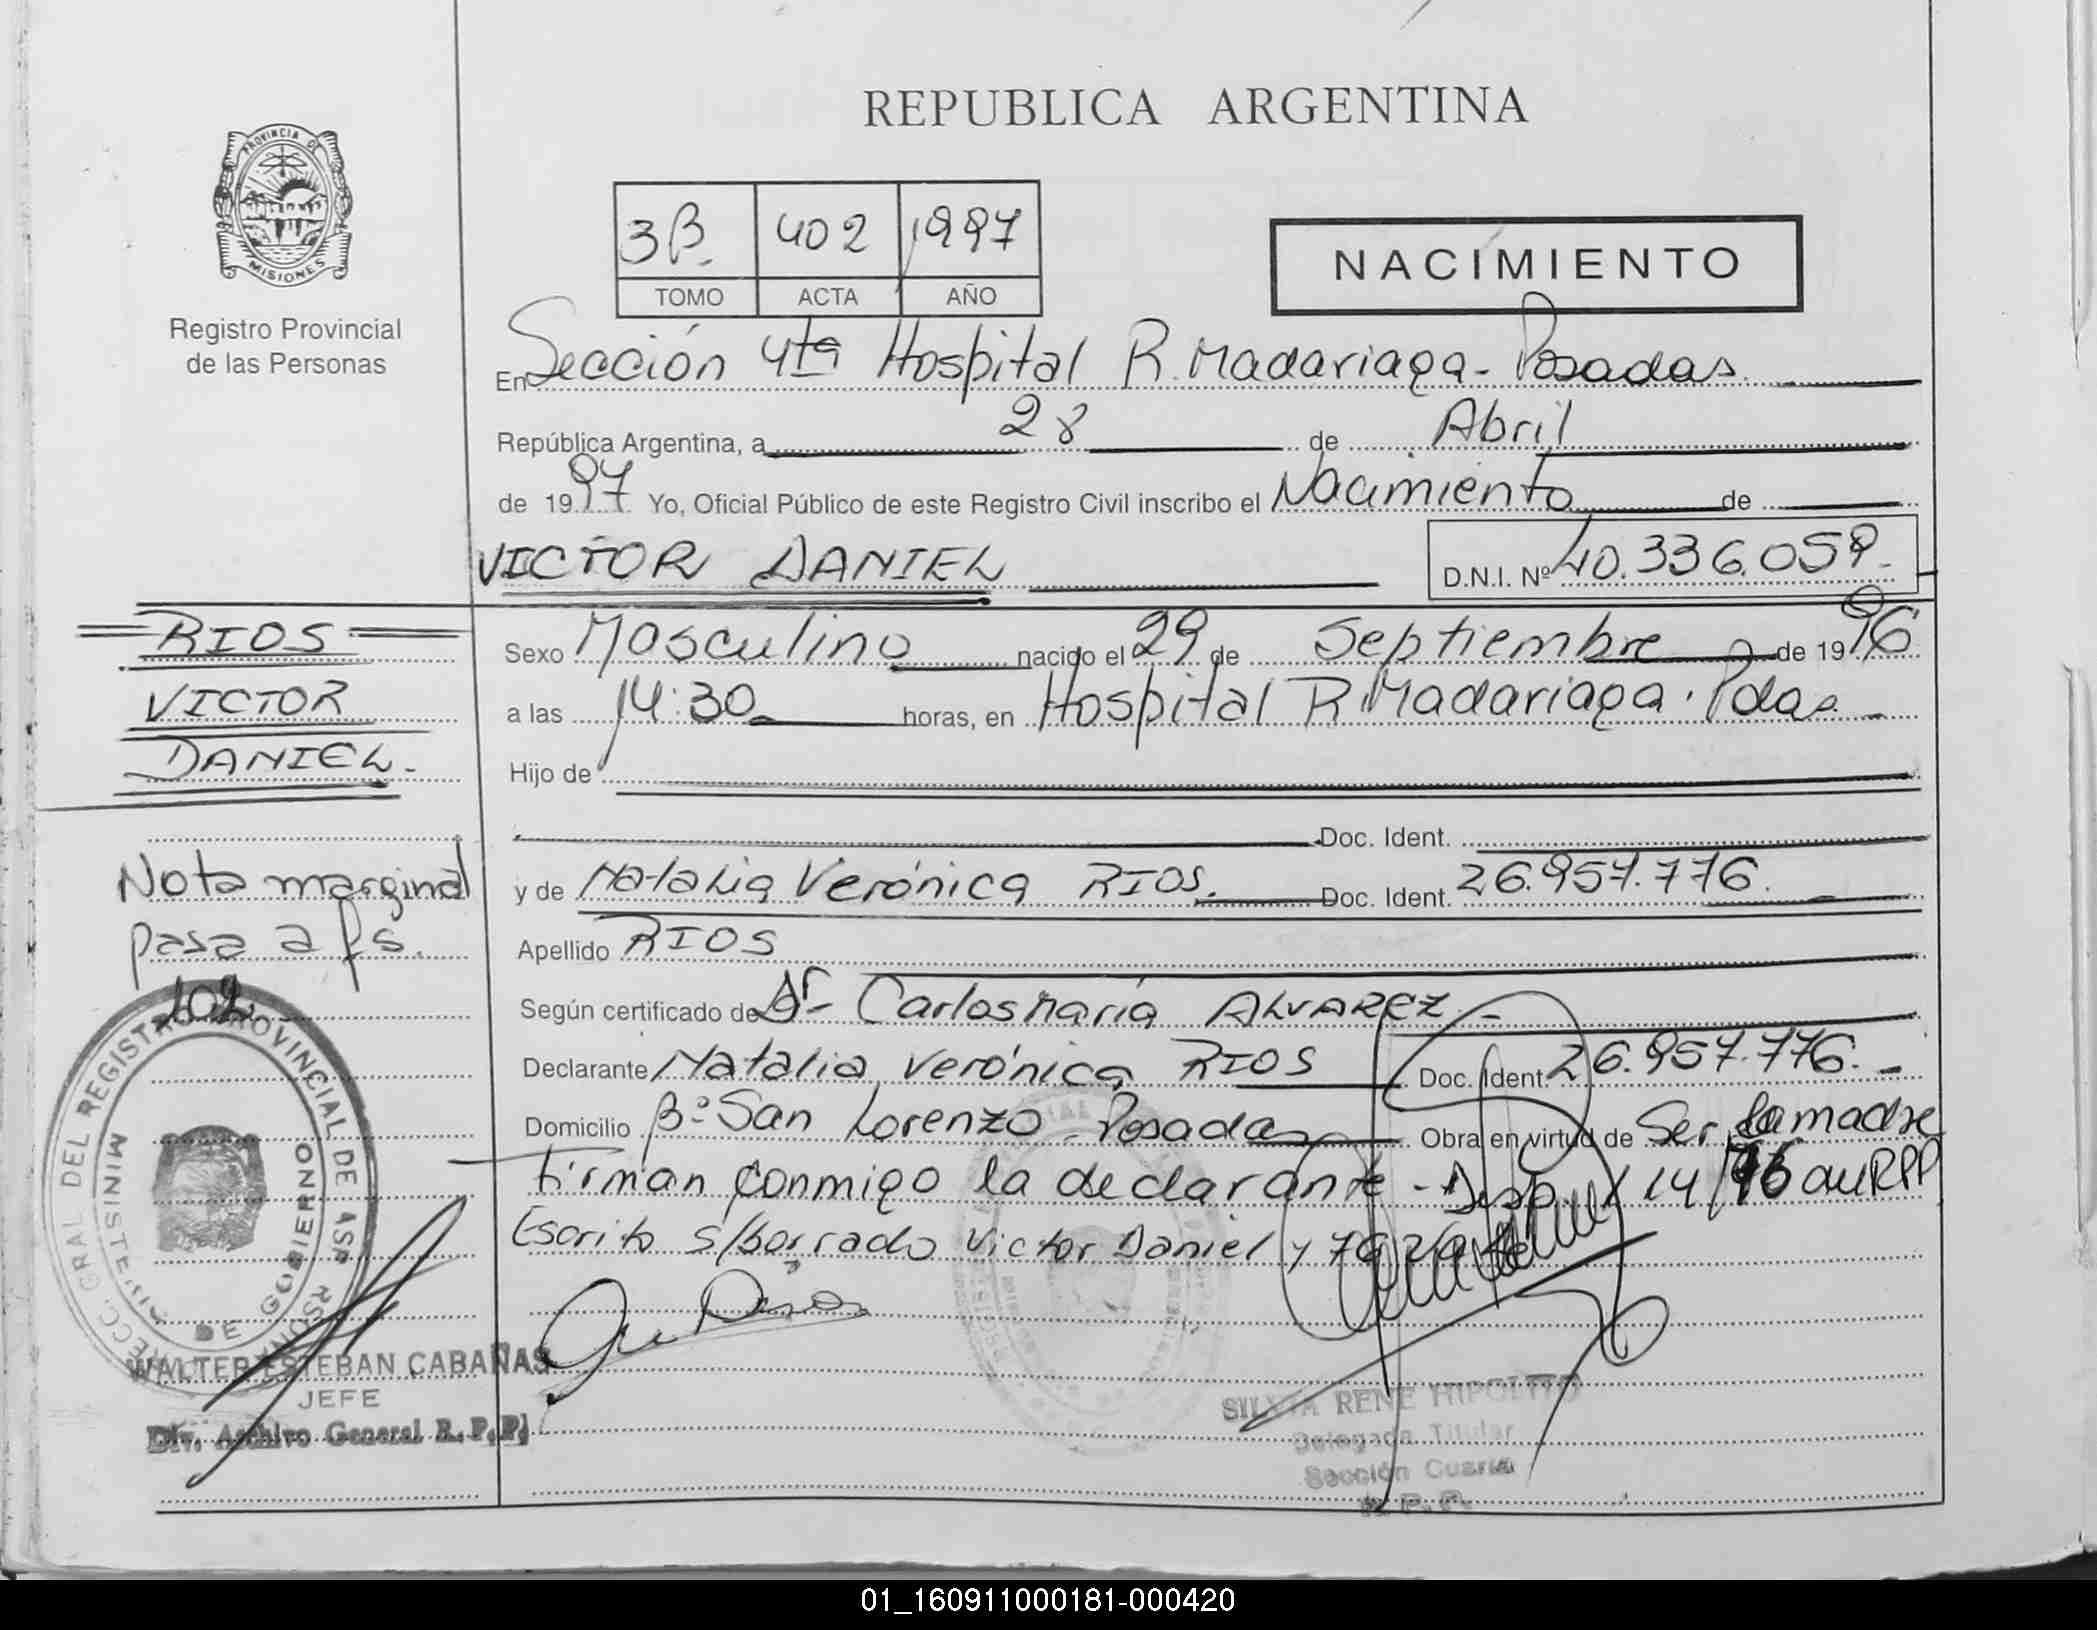 REPUBLICA ARGENTINA
PROVINCIA DE
MISIONES
Registro Provincial
de las Personas
3B. 402 1997
TOMO ACTA AÑO
NACIMIENTO
En Sección 4ta Hospital R. Madariaga - Posadas.
República Argentina, a 28 de Abril
de 1997 Yo, Oficial Público de este Registro Civil inscribo el Nacimiento de
VICTOR DANIEL D.N.I. Nº 40.336.059.-
RIOS
VICTOR
DANIEL.-
Sexo Masculino nacido el 29 de Septiembre de 1996
a las 14:30 horas, en Hospital R. Madariaga. Pdas.
Hijo de
Doc. Ident.
y de Natalia Verónica RIOS. Doc. Ident. 26.957.776.
Apellido RIOS
Según certificado de Dr. Carlos María ALVAREZ -
Declarante Natalia Verónica RIOS Doc. Ident. 26.957.776. -
Domicilio Bº San Lorenzo - Posadas Obra en virtud de Ser la madre
firman conmigo la declarante - Disp. 114/96
Escrito s/borrado Victor Daniel y
Nota marginal
pasa a fs.
102
DIRECC. GRAL DEL REGISTRO PROVINCIAL DE
MINISTERIO DE GOBIERNO
WALTER ESTEBAN CABAÑAS
JEFE
Div. Archivo General R.P.P.
SILVIA RENE HIPOLITO
Delegada Titular
Sección Cuarta
01_160911000181-000420